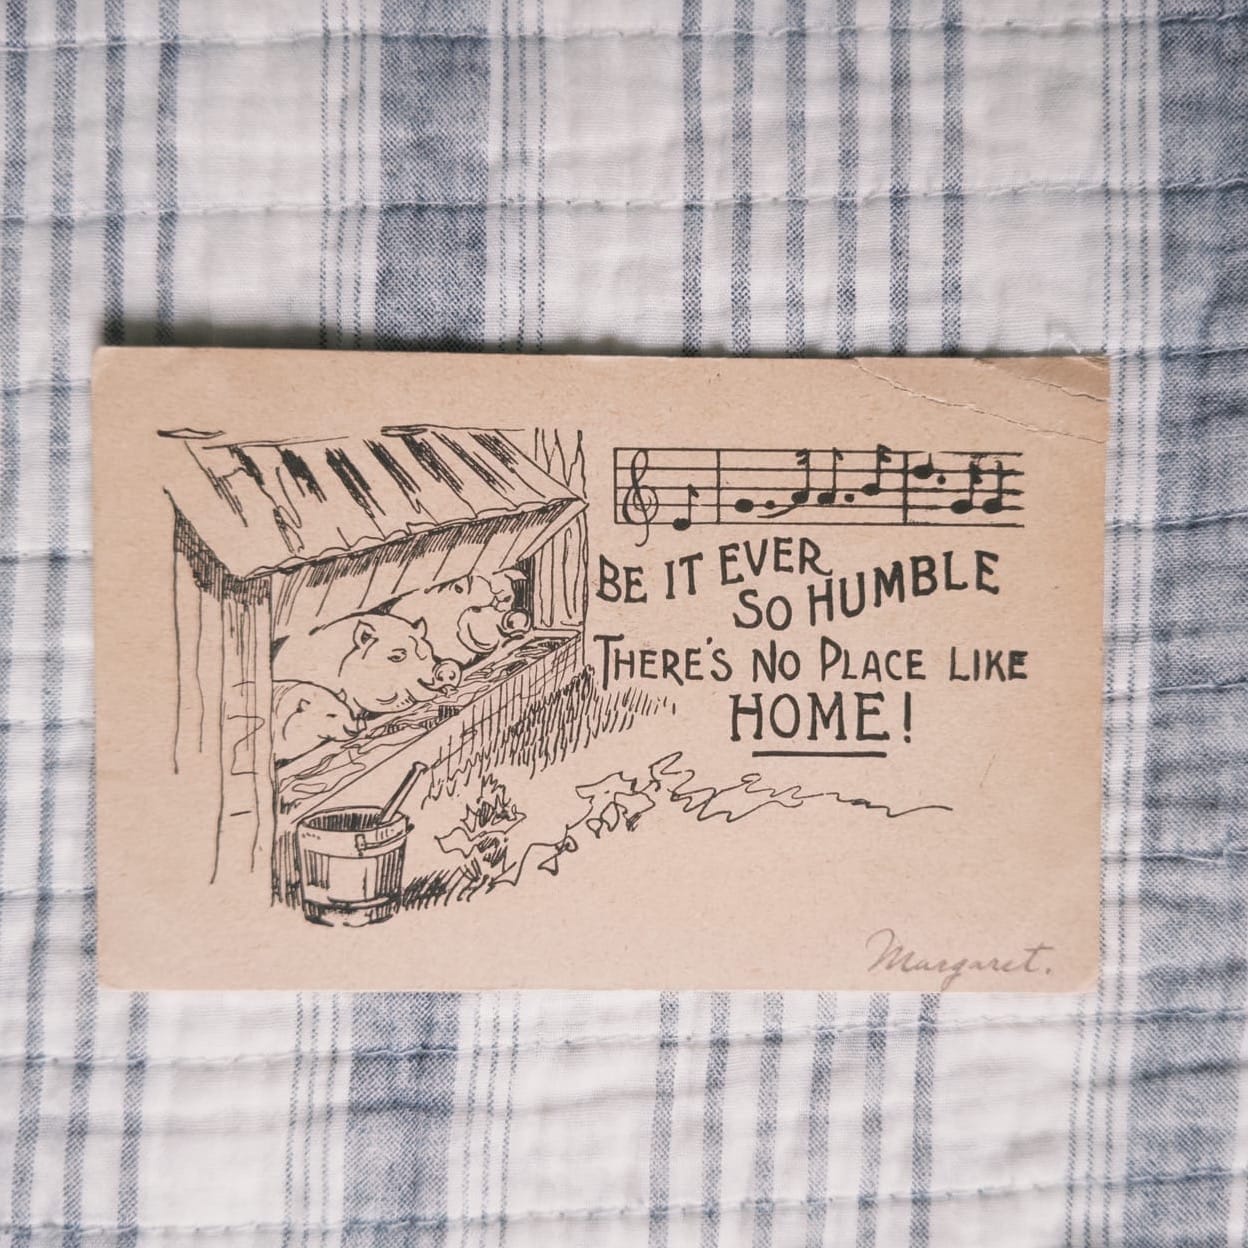 BE IT EVER
SO HUMBLE
THERE'S NO PLACE LIKE
HOME!
Margaret.